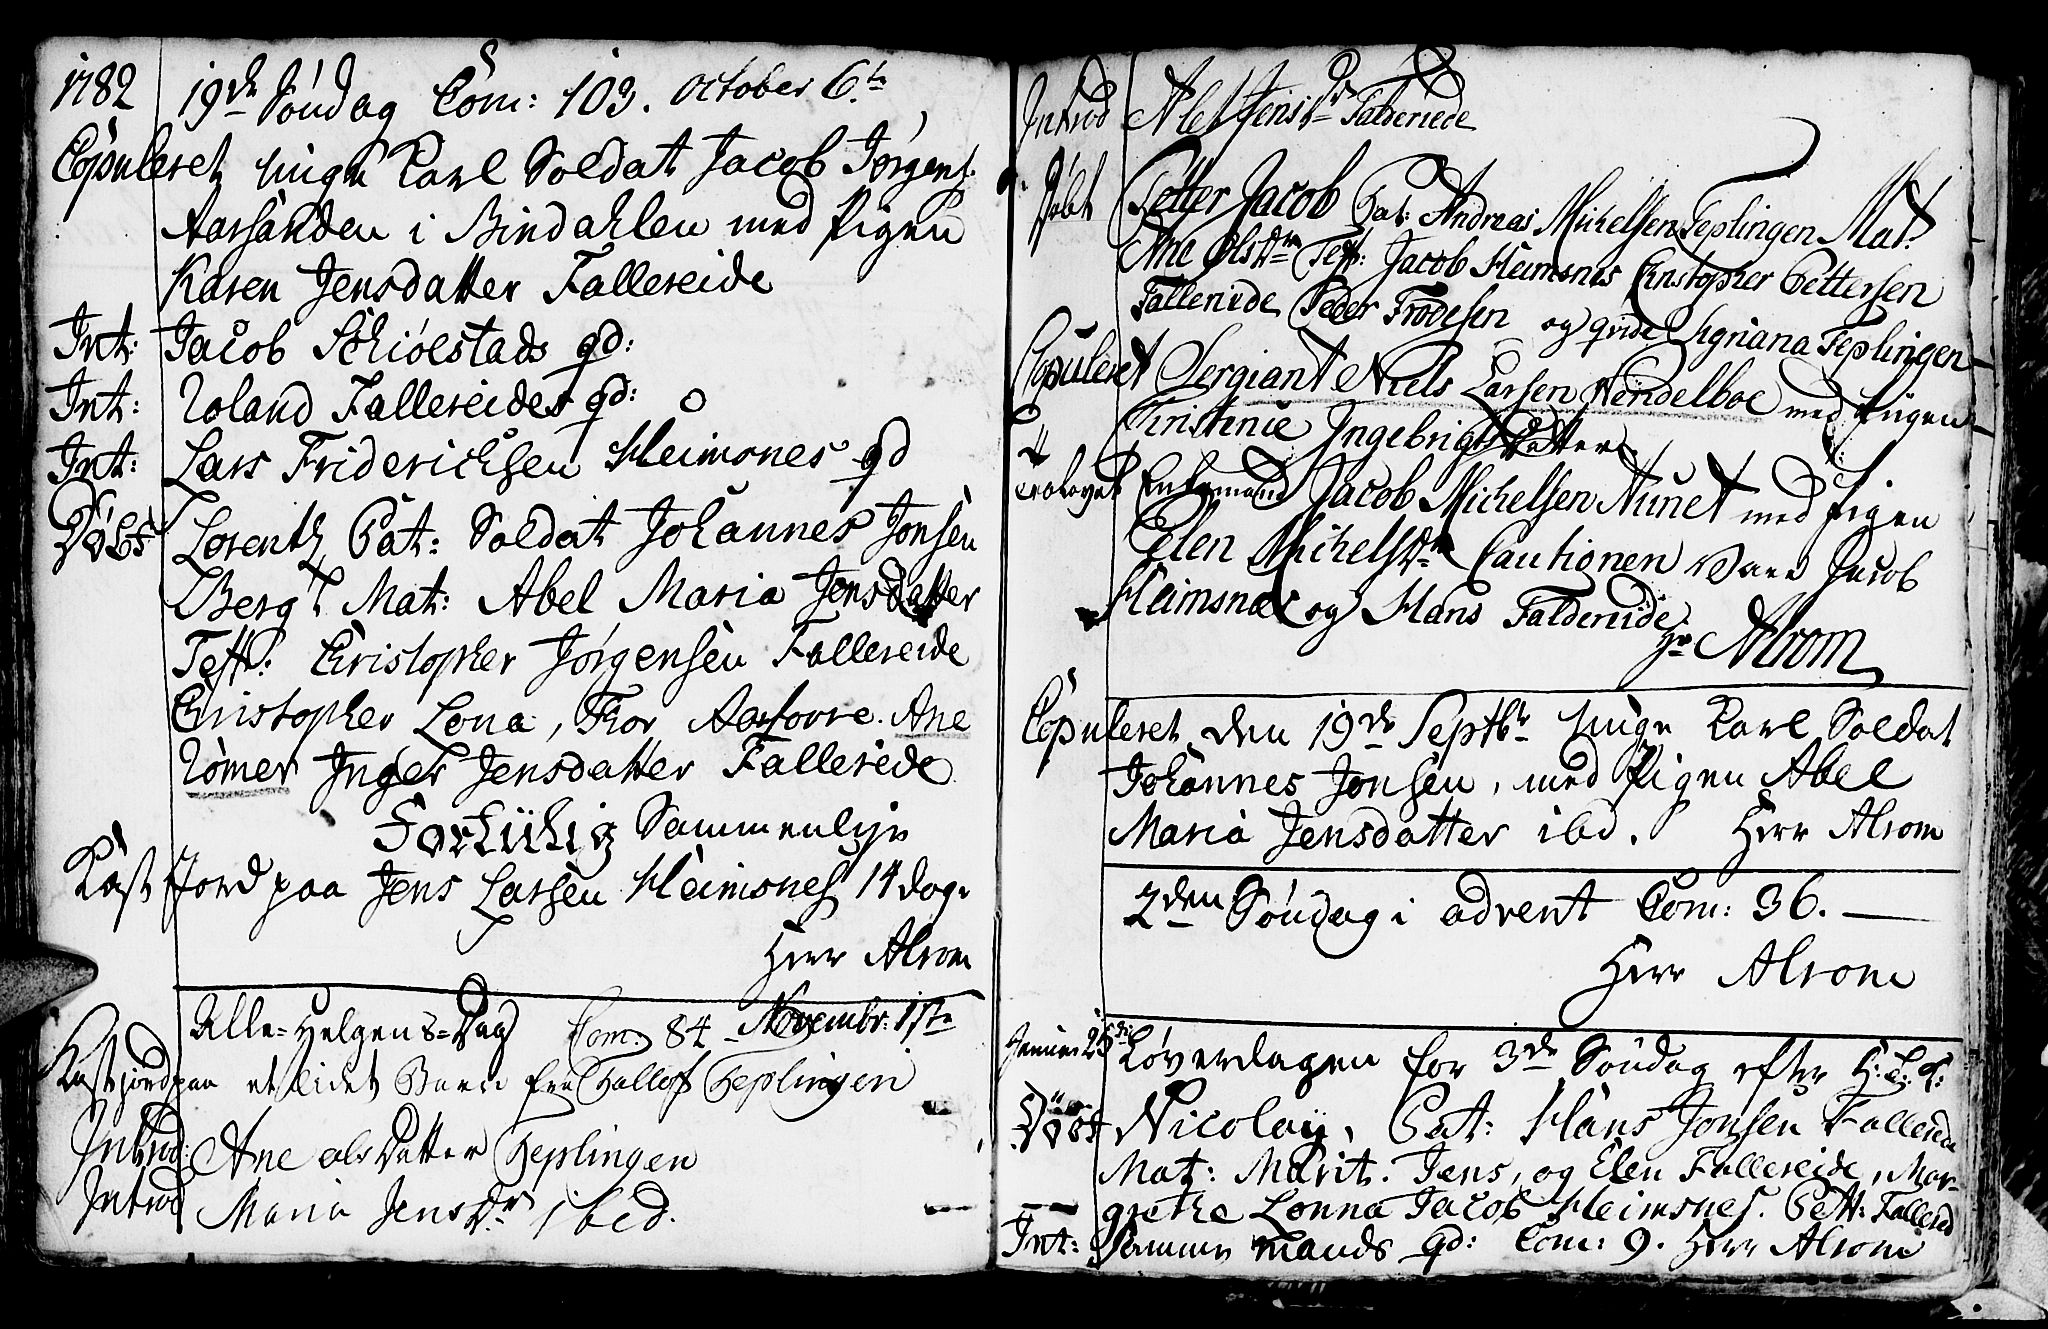 1782 19de Söndag Com: 103. October 6te
Copuleret unge Karl Soldat Jacob Jörgens.
Aarsanden i Bindahlen med Pigen
Karen Jensdatter Fallereide
Int: Jacob Schiöestads qd:
Int: Roland Fallereides qd:
Int: Lars Friderichsen Heimsnes qd
Döbt Lorentz Pat: Soldat Johannes Jonsen
Berg Mat: Abel Maria Jensdatter
Test: Christopher Jörgensen Fallereide
Christopher Lona, Thor Aarforre. Ane
Römer Inger Jensdatter Fallereide
Sammenlign
Kast Jord paa Jens Larsen Heimsnes 14 dage
Herr Alrom
Alle-Helgens-Dag Com. 84 Novembr: 1ste
Kast jord paa et lidet Barn fra Teplingen
Introd: Ane olsDatter Teplingen
Introd Maria JensDr ibid.
Introd Alet JensDr Faldereide
Döbt Petter Jacob Pat: Andreas Michelsen Teplingen Mat:
Ane OlsDr Test: Jacob Heimsnes Christopher Pettersen
Fallereide Peder Frodesen og qvide Signiana Teplingen
Copuleret Sergiant Niels Larsen Wendelboe med Pigen
Christence Ingebrigtsdatter
Trolovet Enkemand Jacob Michelsen Aunet med Pigen
Elen MichelsDr Cautionen var Jacob
Heimsnæs og Hans Faldereide
Hr Alrom
Copuleret den 19de Septbr unge Karl Soldat
Johannes Jonsen, med Pigen Abel
Maria Jensdatter ibd. Herr Alrom
2den Söndag i advent Com: 36.
Herr Alrom
Löverdagen for 3de Söndag efter H: 3: K:
Döbt Nicolay, Pat: Hans Jonsen Fallereide
Mat: Marit. Jens, og Elen Fallereide, Mar-
grethe Lonna Jacob Heimsnes. Pett: Fallereid
Int: mands qd: Com: 9. Herr Alrom